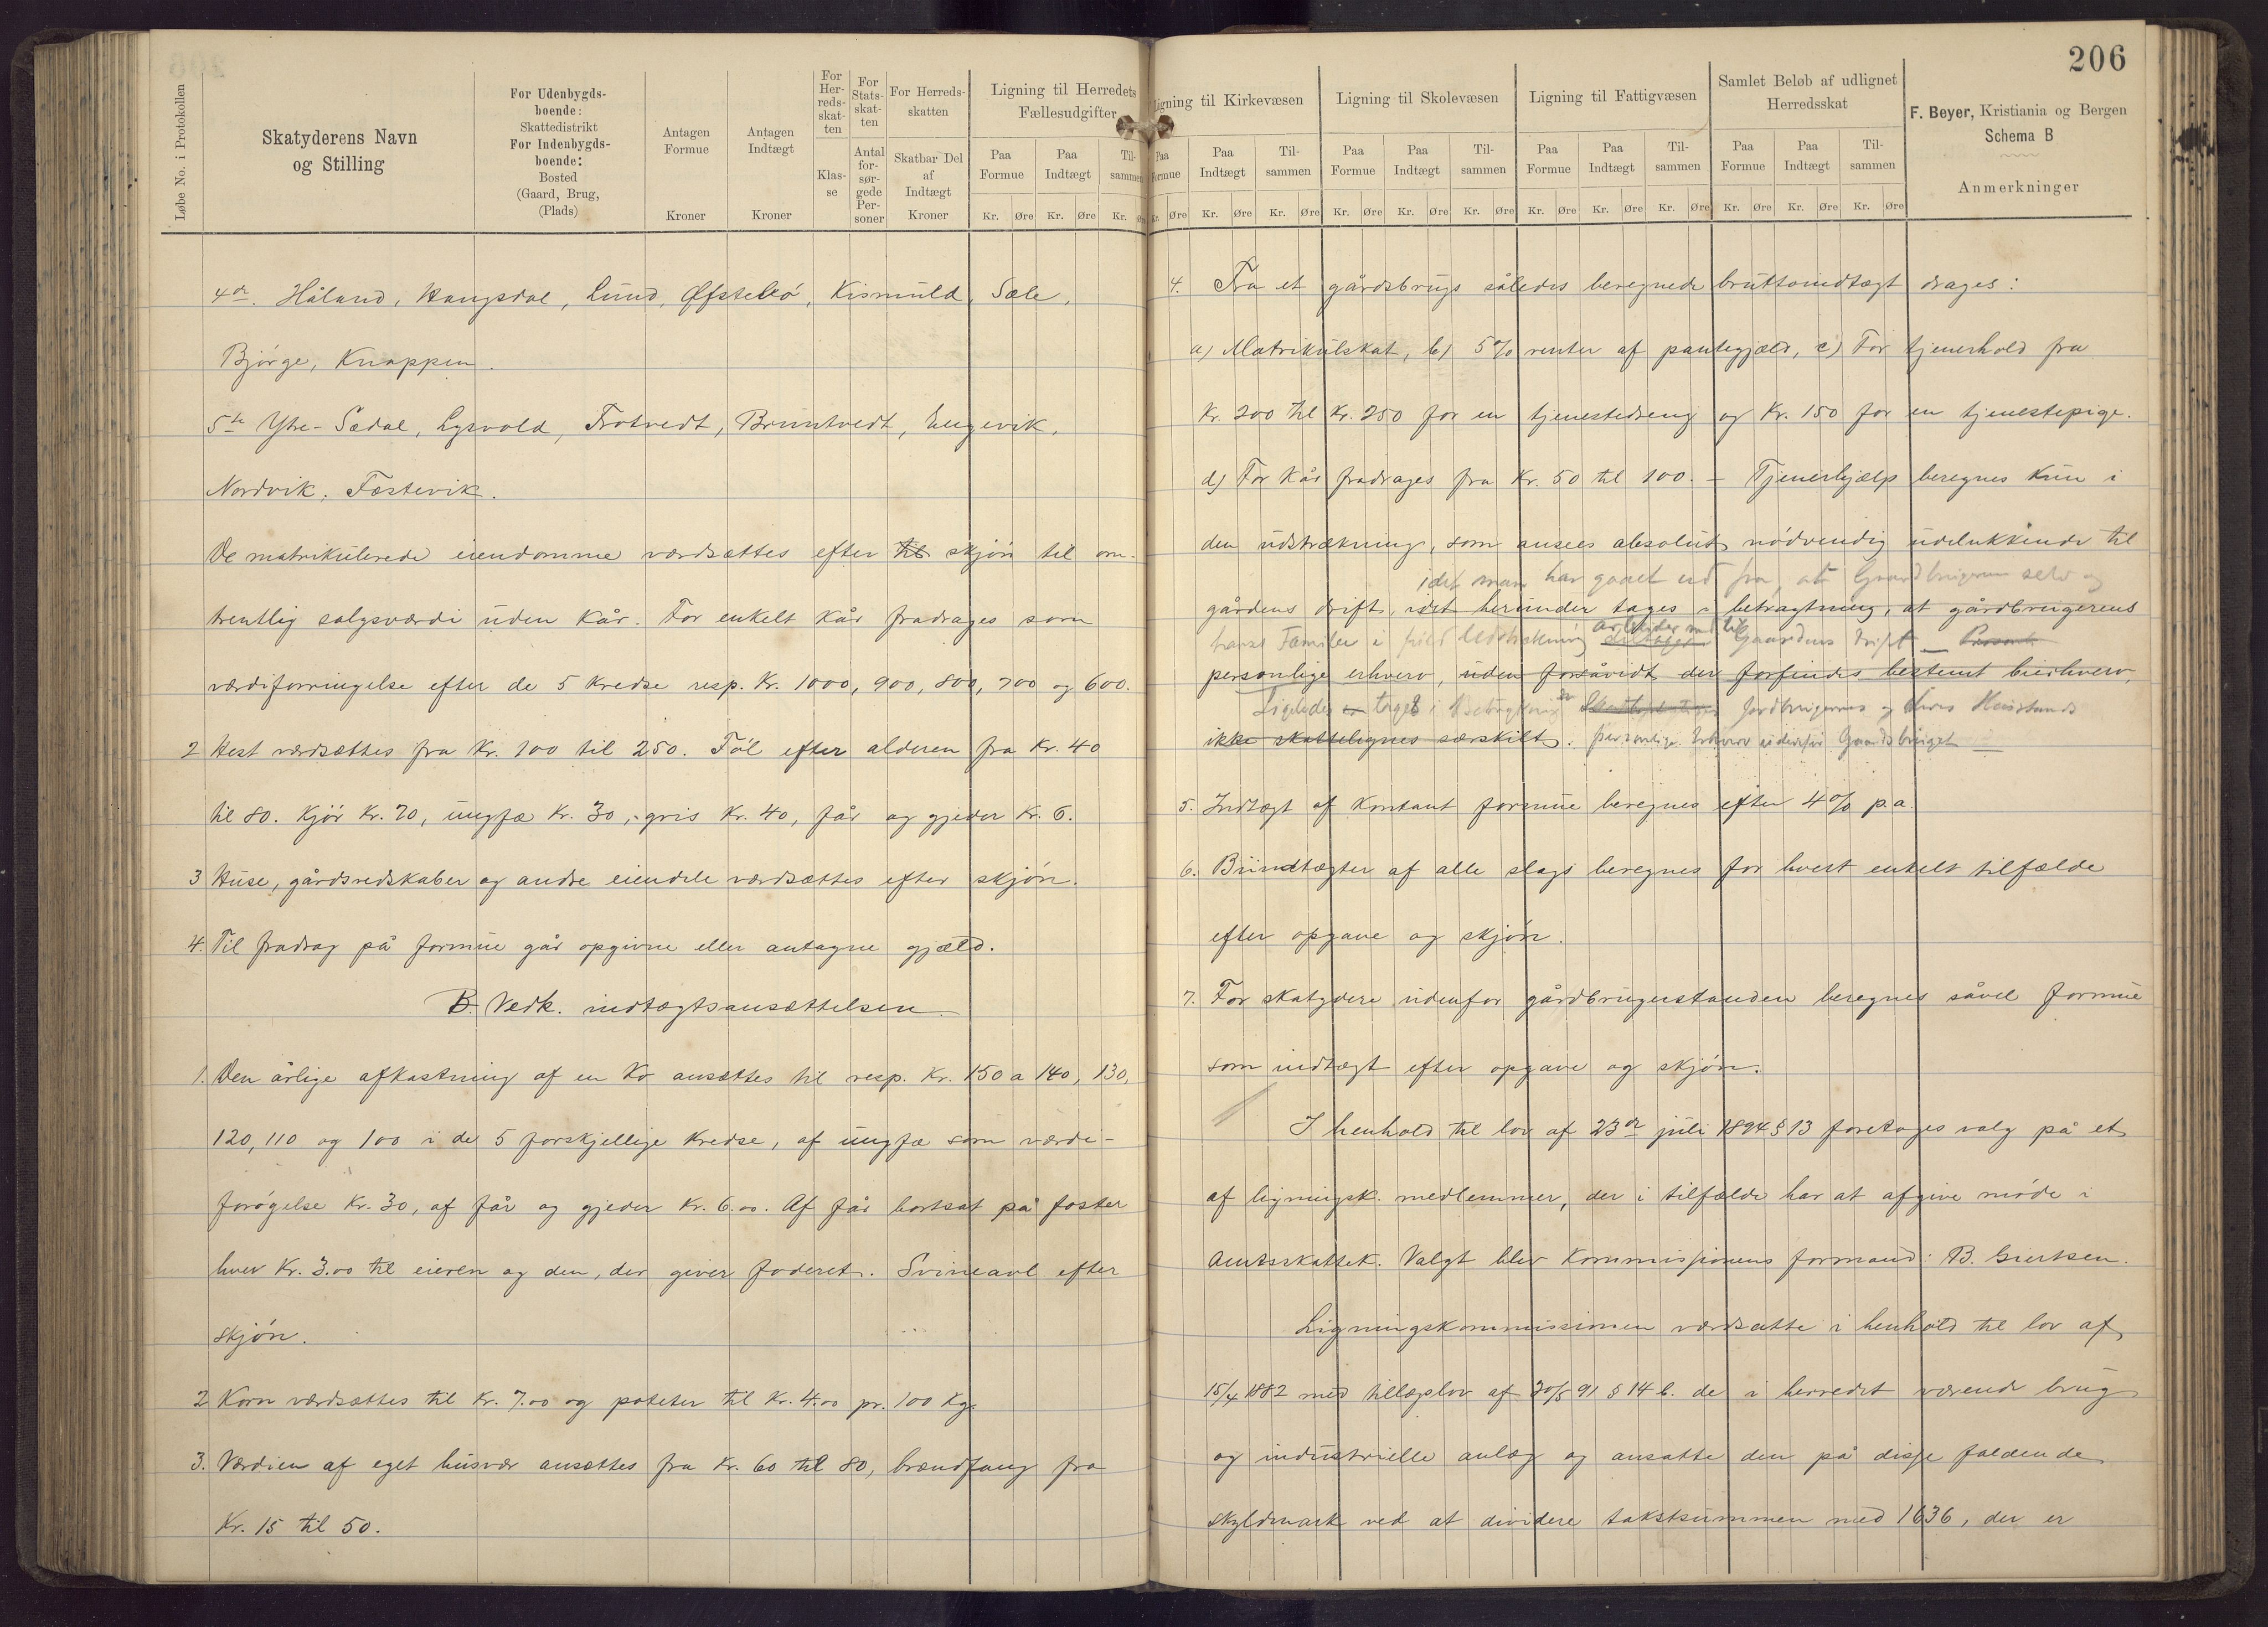 206
Løbe No. i Protokollen
Skatyderens Navn
og Stilling
For Udenbygds-
boende:
Skattedistrikt
For Indenbygds-
boende:
Bosted
(Gaard, Brug,
(Plads)
Antagen
Formue
Kroner
Antagen
Indtægt
Kroner
For
Her-
reds-
skat-
ten
Klas-
se
For
Stats-
skat-
ten
Antal
for-
sør-
gede
Per-
soner
For Herreds-
skatten
Skatbar Del
af
Indtægt
Kroner
Ligning til Herredets
Fællesudgifter
Paa
Formue
Paa
Indtægt
Til-
sammen
Kr. Øre Kr. Øre Kr. Øre
4de. Håland, Haugsdal, Lund, Øfstebø, Kismuld, Sæle,
Bjørge, Knappen.
5te Ytre-Sædal, Lysvold, Trotvedt, Bruntvedt, Engevik,
Nordvik, Fæstevik.
De matrikulerede eiendomme værdsættes efter til skjøn til om-
trentlig salgsværdi uden kår. For enkelt kår fradrages som
værdiforringelse efter de 5 kredse resp. Kr. 1000, 900, 800, 700 og 600.
2 Hest værdsættes fra Kr. 100 til 250. Føl efter alderen fra Kr. 40
til 80. Kjør Kr. 70, ungfæ Kr. 30, gris Kr. 40, får og gjeder Kr. 6.
3 Huse, gårdsredskaber og andre eiendele værdsættes efter skjøn.
4. Til fradrag på formue går opgivne eller antagne gjæld.
B. Vedk. indtægtsansættelsen.
1. Den årlige afkastning af en ko ansættes til resp. Kr. 150 a 140, 130,
120, 110 og 100 i de 5 forskjellige kredse, af ungfæ som værdi-
forøgelse Kr. 30, af får og gjeder Kr. 6.00. Af får bortsat på foster
hver Kr. 3.00 til eieren og den, der giver foderet. Svineavl efter
skjøn.
2 Korn værdsættes til Kr. 7.00 og poteter til Kr. 4.00 pr. 100 Kg.
3. Værdien af eget husvær ansættes fra Kr. 60 til 80, brændfang fra
Kr. 15 til 50.
Ligning til Kirkevæsen
Paa
Formue
Paa
Indtægt
Til-
sammen
Kr. Øre Kr. Øre Kr. Øre
Ligning til Skolevæsen
Paa
Formue
Paa
Indtægt
Til-
sammen
Kr. Øre Kr. Øre Kr. Øre
Ligning til Fattigvæsen
Paa
Formue
Paa
Indtægt
Til-
sammen
Kr. Øre Kr. Øre Kr. Øre
Samlet Beløb af udlignet
Herredsskat
Paa
Formue
Paa
Indtægt
Til-
sammen
Kr. Øre Kr. Øre Kr. Øre
F. Beyer, Kristiania og Bergen
Schema B
Anmerkninger
4. Fra et gårdsbrugs således beregnede bruttoindtægt drages:
a) Matrikulskat, b) 5% renter af pantegjæld, c) For tjenerhold fra
Kr. 200 til Kr. 250 for en tjenestedreng og Kr. 150 for en tjenestepige.
d) For kår fradrages fra Kr. 50 til 100. – Tjenerhjælp beregnes kun i
den udstrækning, som ansees absolut nødvendig udelukkende til
idet man har gaaet ud fra, at Gaardbrugeren selv og
gårdens drift, idet herunder tages i betragtning, at gårdbrugerens
hans Familie i fuld Udstrækning arbeider med til Gaardens Drift –
personlige erhverv, uden forsåvidt der forfindes bestemt bierhverv,
Ligeledes er taget i Betragtning Jordbrugernes og Husstands
ikke skattelignes særskilt. personlige Erhverv udenfor Gaardsbruget –
5. Indtægt af kontant formue beregnes efter 4% p.a.
6. Biindtægter af alle slags beregnes for hvert enkelt tilfælde
efter opgave og skjøn.
7. For skatydere udenfor gårdbrugerstanden beregnes såvel formue
som indtægt efter opgave og skjøn.
I henhold til lov af 23de juli 1894 § 13 foretoges valg på et
af ligningsk. medlemmer, der i tilfælde har at afgive møde i
Amtsskattek. Valgt blev kommissionens formand B. Giertsen.
Ligningskommissionen værdsatte i henhold til lov af
15/4 1882 med tillægslov af 30/5 91 § 14 b. de i herredet værende brug
og industrielle anlæg og ansatte den på disse faldende
skyldmark ved at dividere takstsummen med 1636, der er